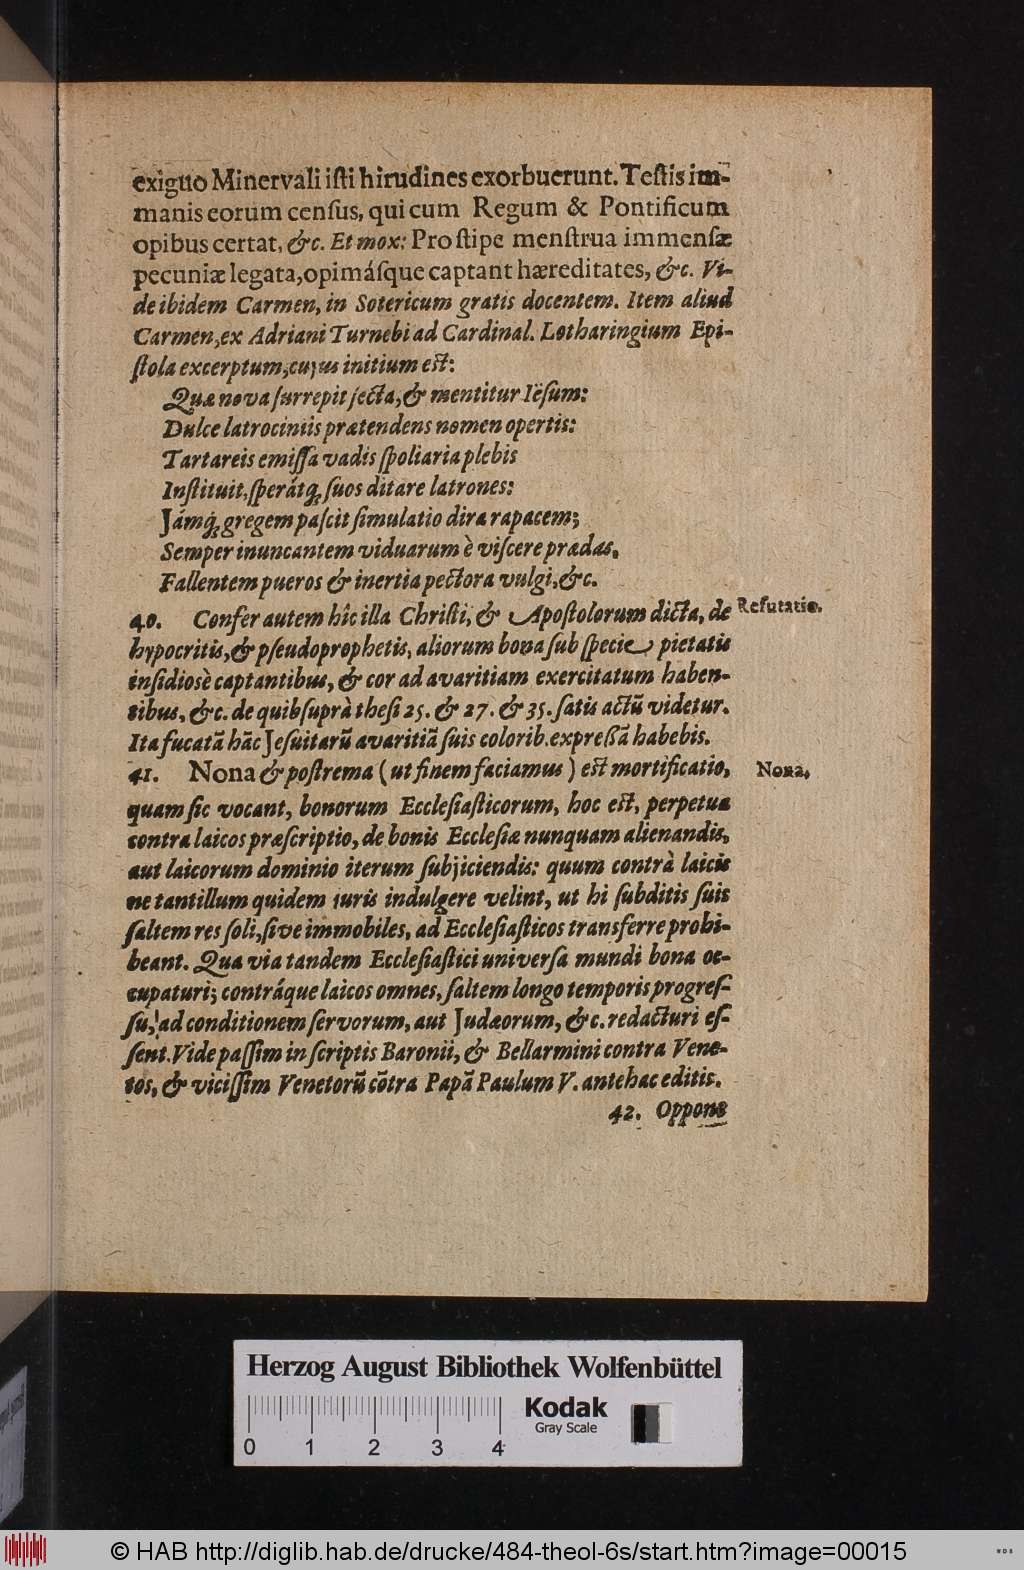 exiguo Minervali iſti hirudines exorbuerunt. Teſtis im-
manis eorum cenſus, qui cum Regum & Pontificum
opibus certat, &c. Et mox: Pro ſtipe menſtrua immenſæ
pecuniæ legata, opimáſque captant hæreditates, &c. Vi-
de ibidem Carmen, in Sotericum gratis docentem. Item aliud
Carmen, ex Adriani Turnebi ad Cardinal. Lotharingium Epi-
ſtola excerptum, cujus initium eſt:
Quæ nova ſurrepit ſecta, & mentitur Iëſum:
Dulce latrociniis prætendens nomen opertis:
Tartareis emiſſa vadis ſpoliaria plebis
Inſtituit, ſperátq; ſuos ditare latrones:
Jámq; gregem paſcit ſimulatio dira rapacem;
Semper inuncantem viduarum è viſcere prædas,
Fallentem pueros & inertia pectora vulgi, &c.
40. Confer autem hîc illa Chriſti, & Apoſtolorum dicta, de
Refutatio.
hypocritis, & pſeudoprophetis, aliorum bona ſub ſpecie pietatis
inſidiosè captantibus, & cor ad avaritiam exercitatum haben-
tibus, &c. de quib ſuprà theſi 25. & 27. & 35. ſatis actũ videtur.
Ita fucatã hãc Jeſuitarũ avaritiã ſuis colorib. expreßã habebis.
41. Nona & poſtrema (ut finem faciamus) eſt mortificatio,
Nona,
quam ſic vocant, bonorum Eccleſiaſticorum, hoc eſt, perpetua
contra laicos præſcriptio, de bonis Eccleſiæ nunquam alienandis,
aut laicorum dominio iterum ſubjiciendis: quum contrà laicis
ne tantillum quidem juris indulgere velint, ut hi ſubditis ſuis
ſaltem res ſoli, ſive immobiles, ad Eccleſiaſticos transferre prohi-
beant. Qua via tandem Eccleſiaſtici univerſa mundi bona oc-
cupaturi; contráque laicos omnes, ſaltem longo temporis progreſ-
ſu, ad conditionem ſervorum, aut Judæorum, &c. redacturi eſ-
ſent. Vide paſſim in ſcriptis Baronii, & Bellarmini contra Vene-
tos, & viciſſim Venetorũ cõtra Papã Paulum V. antehac editis.
42. Oppone
Herzog August Bibliothek Wolfenbüttel
Kodak
Gray Scale
0 1 2 3 4
© HAB http://diglib.hab.de/drucke/484-theol-6s/start.htm?image=00015